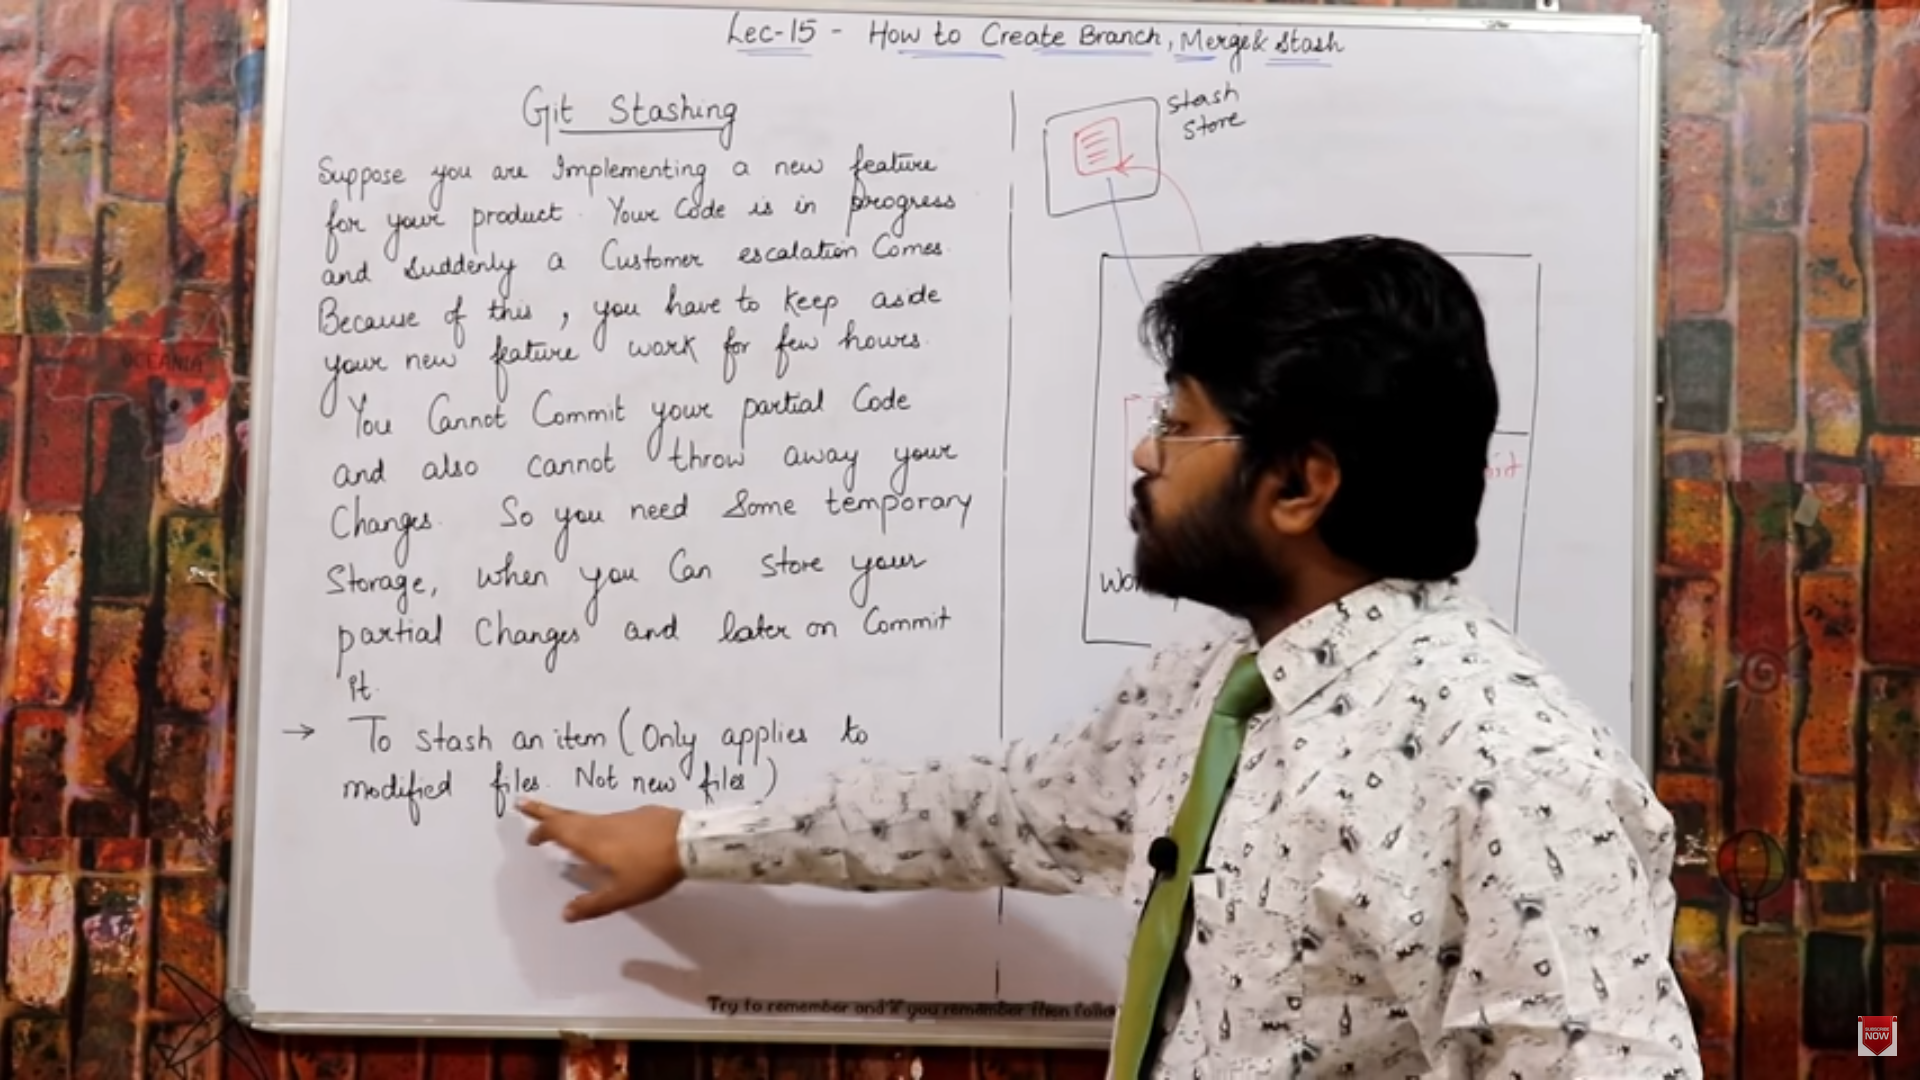 Lec-15 - How to Create Branch, Merge & Stash
Git Stashing
Suppose you are Implementing a new feature
for your product. Your Code is in progress
and suddenly a Customer escalation Comes.
Because of this, you have to keep aside
your new feature work for few hours.
You Cannot Commit your partial Code
and also cannot throw away your
Changes. So you need Some temporary
Storage, when you Can store your
partial Changes and later on Commit
it.
→ To stash an item (Only applies to
modified files. Not new files)
Stash
Store
OCEANIA
Try to remember and if you remember then
SUBSCRIBE
NOW